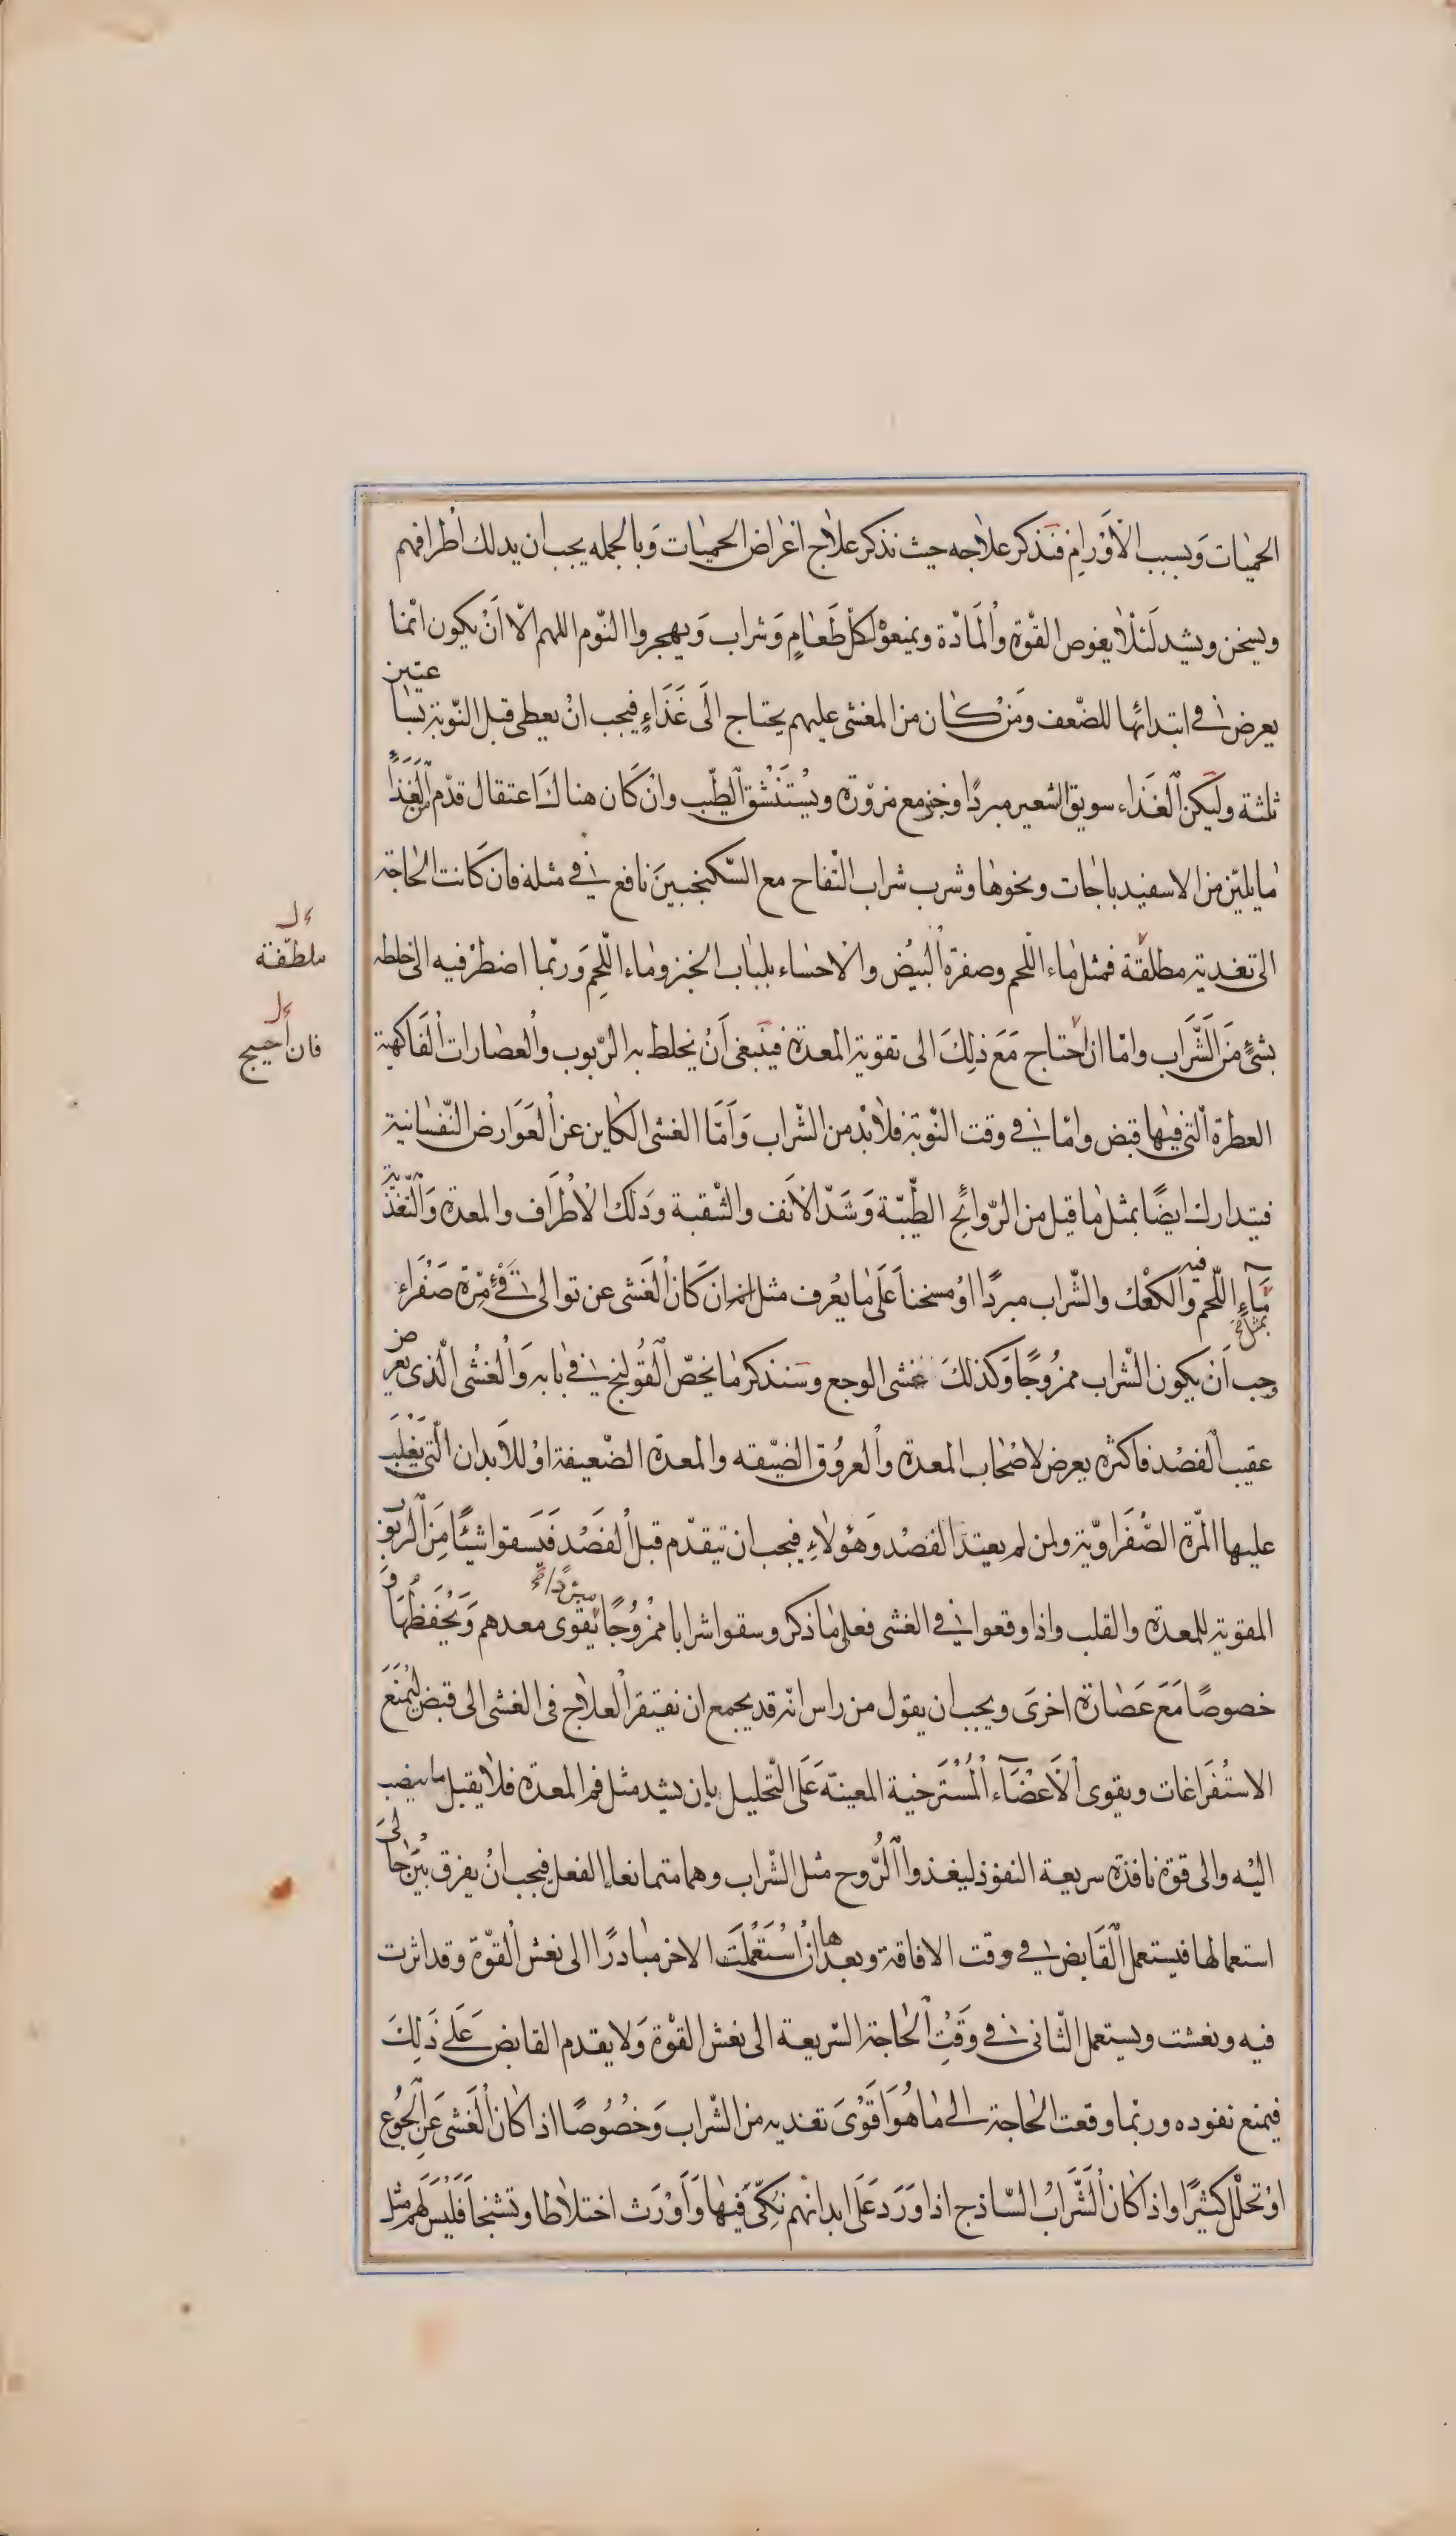 الحميات وبسبب الأورام فنذكر علاجه حيث نذكر علاج اعراض الحميات وبالجمله يجب ان يدلك اطرافهم
ويسخن ويشد لئلا يغوص القوة والمادة ويمنعوا كل طعام وشراب ويهجروا النوم اللهم الا ان يكون انما
يعرض في ابتدائها للضعف ومن كان من المغشى عليهم يحتاج الى غذاء فيجب ان يعطى قبل النوبة بساعتين
ثلثة وليكن الغذاء سويق الشعير مبردا وخبز مع مزورة ويستنشق الطيب وان كان هناك اعتقال قدم الغذا
ما يلين من الاسفيد باجات ونحوها وشرب شراب التفاح مع السكنجبين نافع في مثله فان كانت الحاجة
الى تغدية مطلقة فمثل ماء اللحم وصفرة البيض والاحساء بلباب الخبز وماء اللحم وربما اضطر فيه الى خلطه
ملطفة
بشئ من الشراب واما ان احتاج مع ذلك الى تقوية المعدة فينبغى ان يخلط به الربوب والعصارات الفاكهية
فان أحتيج
العطرة التى فيها قبض واما في وقت النوبة فلا بد من الشراب واما الغشى الكاين عن العوارض النفسانية
فيتدارك ايضا بمثل ما قيل من الروائح الطيبة وشد الانف والشقبة ودلك الاطراف والمعدة والتغذية
بمثل
مآء اللحم والكعك والشراب مبردا او مسخنا على ما يعرف فيه مثل انه ان كان الغشى عن توالى قئ مرة صفراء
وجب ان يكون الشراب ممزوجا وكذلك غشى الوجع وسنذكر ما يخص القولنج في بابه والغشى الذى يعرض
عقيب الفصد فاكثره يعرض لاصحاب المعدة والعروق الضيقه والمعدة الضعيفة او للابدان التى يغلب
عليها المرة الصفراوية ولمن لم يعتد الفصد وهؤلاء فيجب ان تيقدم قبل الفصد فيسقوا شيئا من الربوب
المقوية للمعدة والقلب واذا وقعوا في الغشى فعل ما ذكر وسقوا شرابا ممزوجا مبردا يقوى معدهم ويحفظها و
خصوصا مع عصارة اخرى ويجب ان يقول من راس انه قد يجمع ان نفيتقر العلاج فى الغشى الى قبض ليمنع
الاستفراغات ويقوى الأعضآء المسترخية المعينة على التحليل بان يشد مثل فم المعدة فلا يقبل ما ينصب
اليه والى قوة نافذة سريعة النفوذ ليغذوا الروح مثل الشراب وهما متمانعا الفعل فيجب ان يفرق بين حالى
استعمالها فيستعمل القابض في وقت الافاقة وبعدها ان استعملت الاخر مبادرا الى نعش القوة وقد اثرت
فيه ونعشت ويستعمل الثانى في وقت الحاجة السريعة الى نعش القوة ولا يقدم القابض على ذلك
فيمنع نفوده وربما وقعت الحاجة الى ما هو اقوى تغديه من الشراب وخصوصا اذا كان الغشى عن الجوع
او تحلل كثيرا واذا كان الشراب الساذج اذا ورد على ابدانهم نكى فيها وأورث اختلاطا وتشنجا فليس لهم مثل